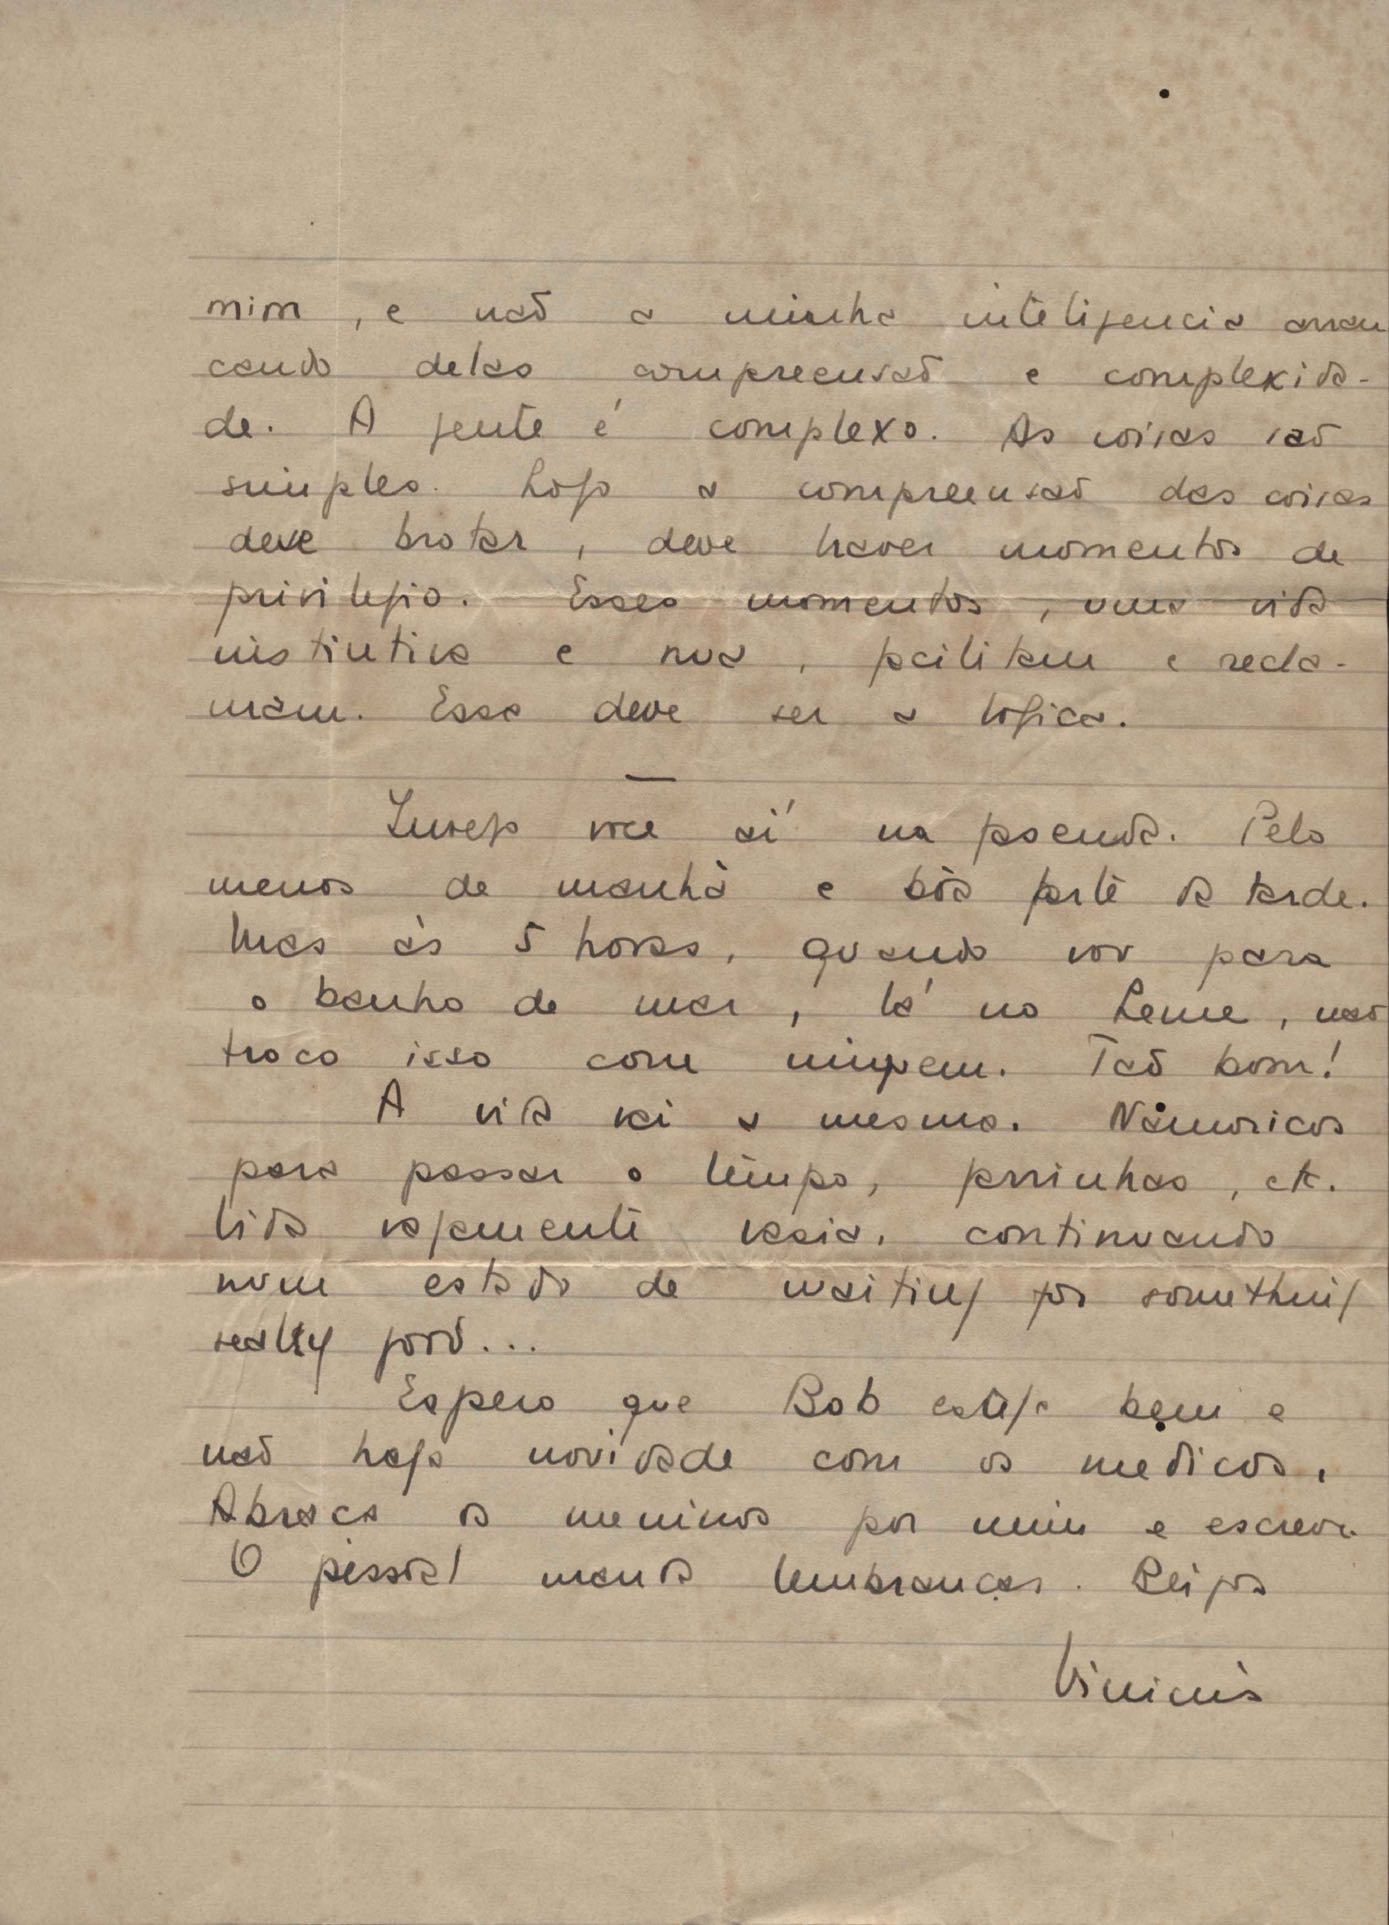 mim, e não a minha inteligencia arran
cando delas compreensão e complexida-
de. A gente é complexo. As coisas são
simples. Logo a compreensão das coisas
deve brotar, deve haver momentos de
privilegio. Esses momentos, uma vida
instintiva e nua, facilitam e recla-
mam. Essa deve ser a logica.
—
Invejo voce aí na fazenda. Pelo
menos de manhã e bôa parte da tarde.
Mas às 5 horas, quando vou para
o banho de mar, lá no Leme, não
troco isso com ninguem. Tão bom!
A vida vai a mesma. Namoricos
para passar o tempo, farrinhas, etc.
Vida vagamente vasia, continuando
num estado de waiting for something
really good...
Espero que Bob esteja bem e
não haja novidade com os medicos.
Abraça os meninos por mim e escreva.
O pessoal manda lembranças. Beijos
Vinicius